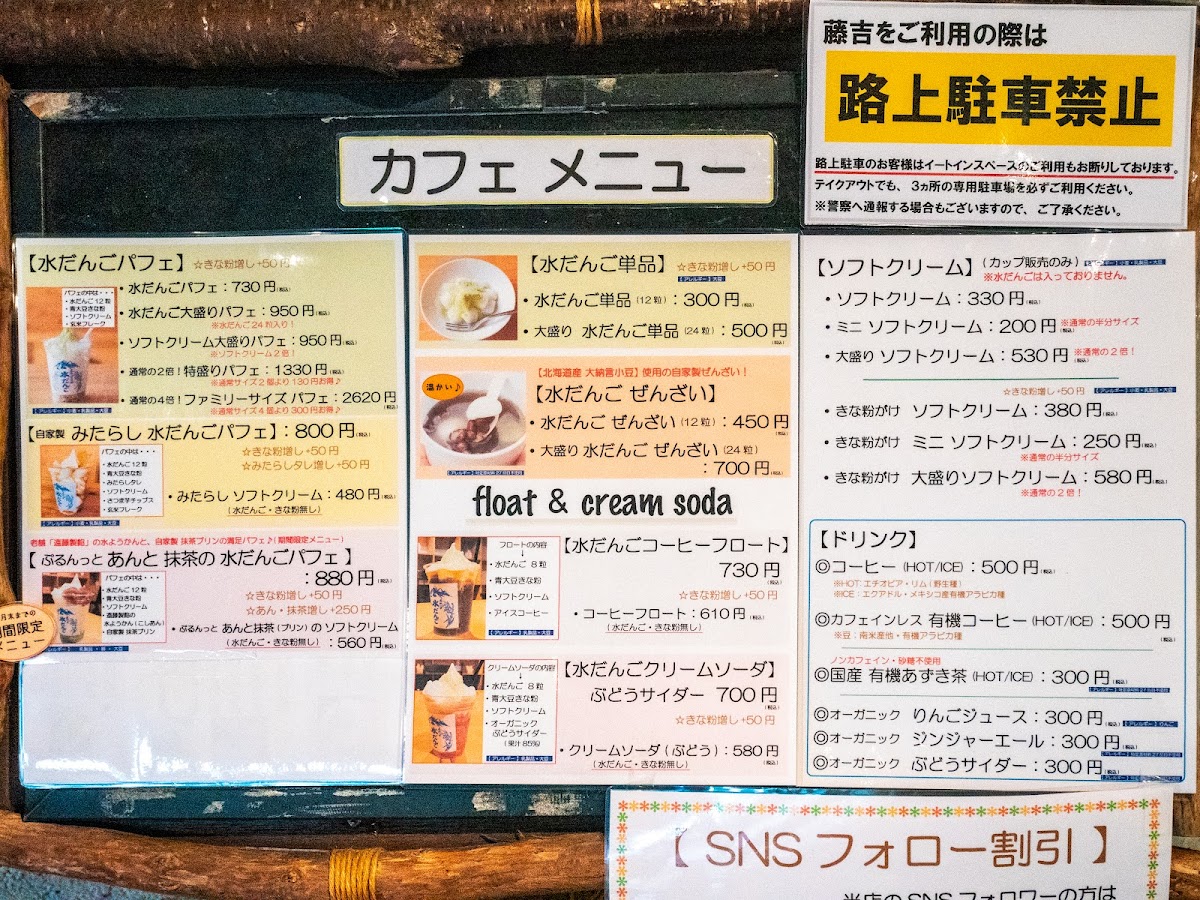 藤吉をご利用の際は
路上駐車禁止
路上駐車のお客様はイートインスペースのご利用もお断りしております。
テイクアウトでも、3ヵ所の専用駐車場を必ずご利用ください。
※警察へ通報する場合もございますので、ご了承ください。
カフェ メニュー
【水だんごパフェ】 ☆きな粉増し+50円
パフェの中は・・・
・水だんご12粒
・青大豆きな粉
・ソフトクリーム
・玄米フレーク
【アレルギー】小麦・乳製品・大豆
・水だんごパフェ：730円(税込)
・水だんご大盛りパフェ：950円(税込)
※水だんご24粒入り！
・ソフトクリーム大盛りパフェ：950円(税込)
※ソフトクリーム2倍！
・通常の2倍！特盛りパフェ：1330円(税込)
※通常サイズ2個より130円お得♪
・通常の4倍！ファミリーサイズ パフェ：2620円(税込)
※通常サイズ4個より300円お得♪
【自家製 みたらし 水だんごパフェ】：800円(税込)
☆きな粉増し+50円
☆みたらしタレ増し+50円
パフェの中は・・・
・水だんご12粒
・青大豆きな粉
・みたらしタレ
・ソフトクリーム
・さつま芋チップス
・玄米フレーク
【アレルギー】小麦・乳製品・大豆
・みたらし ソフトクリーム：480円(税込)
(水だんご・きな粉無し)
老舗「遠藤製餡」の水ようかんと、自家製 抹茶プリンの満足パフェ♪(期間限定メニュー)
【ぷるんっと あんと 抹茶の 水だんごパフェ】
：880円(税込)
☆きな粉増し+50円
☆あん・抹茶増し+250円
パフェの中は・・・
・水だんご12粒
・青大豆きな粉
・ソフトクリーム
・遠藤製餡の
水ようかん(こしあん)
・自家製 抹茶プリン
・ぷるんっと あんと抹茶(プリン)の ソフトクリーム
(水だんご・きな粉無し)：560円(税込)
月末までの
期間限定
メニュー
【水だんご単品】 ☆きな粉増し+50円
【アレルギー】大豆
・水だんご単品(12粒)：300円(税込)
・大盛り 水だんご単品(24粒)：500円(税込)
【北海道産 大納言小豆】使用の自家製ぜんざい！
温かい♪
【水だんご ぜんざい】
・水だんご ぜんざい(12粒)：450円(税込)
・大盛り 水だんご ぜんざい(24粒)
：700円(税込)
float & cream soda
フロートの内容
↓
・水だんご 8粒
・青大豆きな粉
・ソフトクリーム
・アイスコーヒー
【アレルギー】乳製品・大豆
【水だんごコーヒーフロート】
730円
(税込)
☆きな粉増し+50円
・コーヒーフロート：610円(税込)
(水だんご・きな粉無し)
クリームソーダの内容
↓
・水だんご 8粒
・青大豆きな粉
・ソフトクリーム
・オーガニック
ぶどうサイダー
(果汁85%)
【アレルギー】乳製品・大豆
【水だんごクリームソーダ】
ぶどうサイダー 700円
(税込)
☆きな粉増し+50円
・クリームソーダ(ぶどう)：580円
(水だんご・きな粉無し) (税込)
【ソフトクリーム】(カップ販売のみ)【アレルギー】小麦・乳製品・大豆
※水だんごは入っておりません。
・ソフトクリーム：330円(税込)
・ミニ ソフトクリーム：200円(税込) ※通常の半分サイズ
・大盛り ソフトクリーム：530円(税込) ※通常の2倍！
☆きな粉増し+50円 【アレルギー】小麦・乳製品・大豆
・きな粉がけ ソフトクリーム：380円(税込)
・きな粉がけ ミニ ソフトクリーム：250円(税込)
※通常の半分サイズ
・きな粉がけ 大盛りソフトクリーム：580円(税込)
※通常の2倍！
【ドリンク】
◎コーヒー(HOT/ICE)：500円(税込)
※HOT：エチオピア・リム(野生種)
※ICE：エクアドル・メキシコ産有機アラビカ種
◎カフェインレス 有機コーヒー(HOT/ICE)：500円
(税込)
※豆：南米産他・有機アラビカ種
ノンカフェイン・砂糖不使用
◎国産 有機あずき茶(HOT/ICE)：300円(税込)
◎オーガニック りんごジュース：300円(税込)【アレルギー】りんご
◎オーガニック ジンジャーエール：300円(税込)
◎オーガニック ぶどうサイダー：300円(税込)
【SNSフォロー割引】
当店のSNSフォロワーの方は